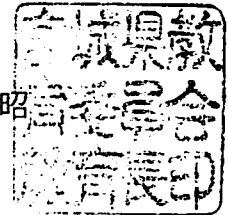 宮城県教
育委員会
教育長印
昭